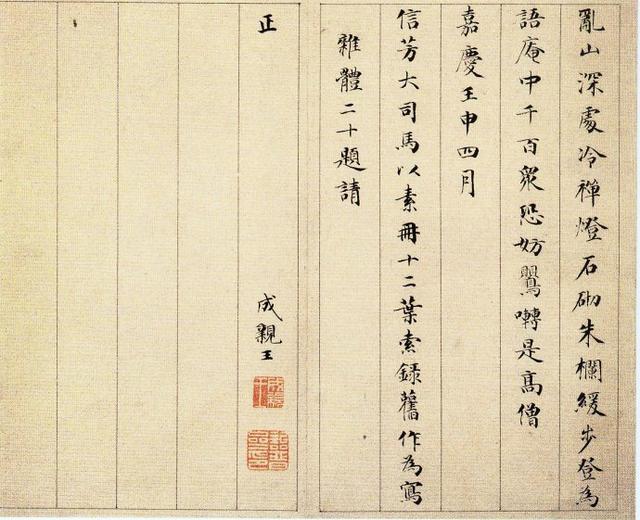 亂山深處冷禪燈石砌朱欄緩步登為
語庵中千百衆恐妨鸎囀是高僧
嘉慶壬申四月
信芳大司馬以素冊十二葉索録舊作為寫
雜體二十題請
正
成親王